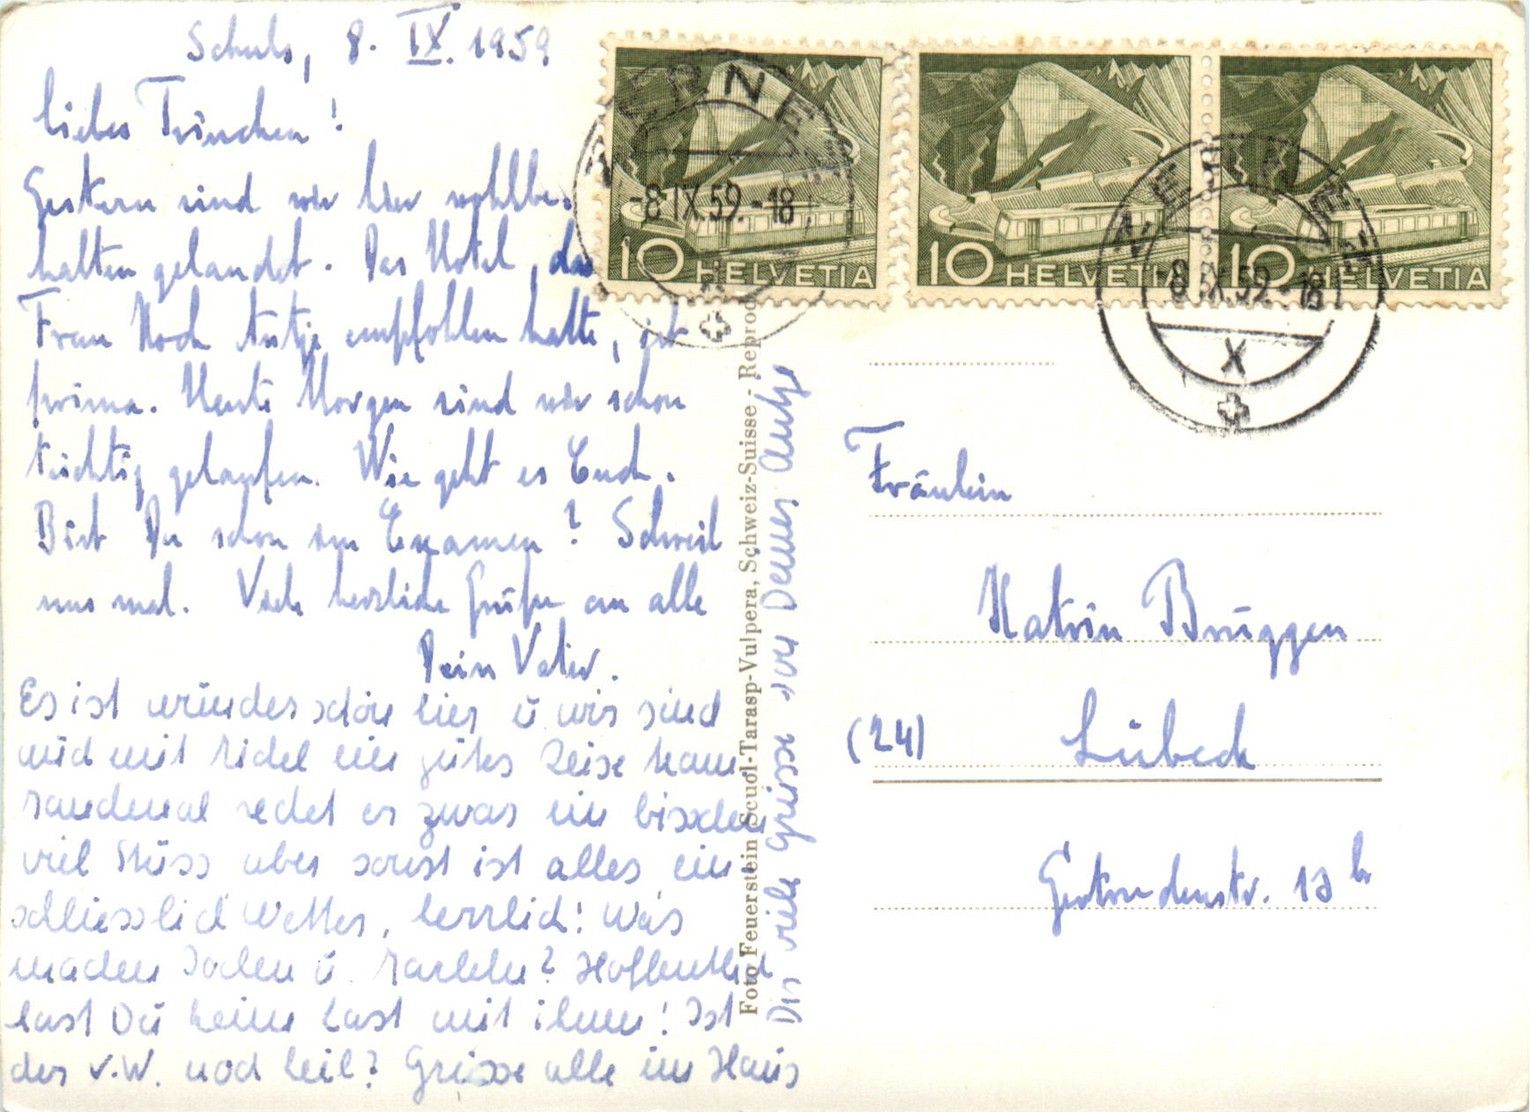 Schuls, 8. IX. 1959
Liebes Trinchen!
Gestern sind wir hier wohlbe-
halten gelandet. Das Hotel, das
Frau Koch Antje empfohlen hatte, ist
prima. Heute Morgen sind wir schon
tüchtig gelaufen. Wie geht es Euch.
Bist Du schon im Examen? Schreib
uns mal. Viele herzliche Grüße an alle
Dein Vater.
Es ist wunderschön hier u. wir sind
und mit ein gutes
manchmal redet er zwar ein bisschen
viel Stuss aber sonst ist alles, ein-
schliesslich Wetter, herrlich! Was
machen Jochen u. ? Hoffentlich
hast Du keine Last mit ihnen! Ist
der v.W. noch heil? Grüsse alle im Haus
Dir viele Grüsse von Deiner Antje
Foto Feuerstein Scuol-Tarasp-Vulpera, Schweiz-Suisse - Reprod
ZERNEZ
-8.IX.59.-18
10 HELVETIA
10 HELVETIA
10 HELVETIA
ZERNEZ
-8.IX.59.-18
X
Fräulein
Katrin Brüggen
(24) Lübeck
Gertrudenstr. 13 b